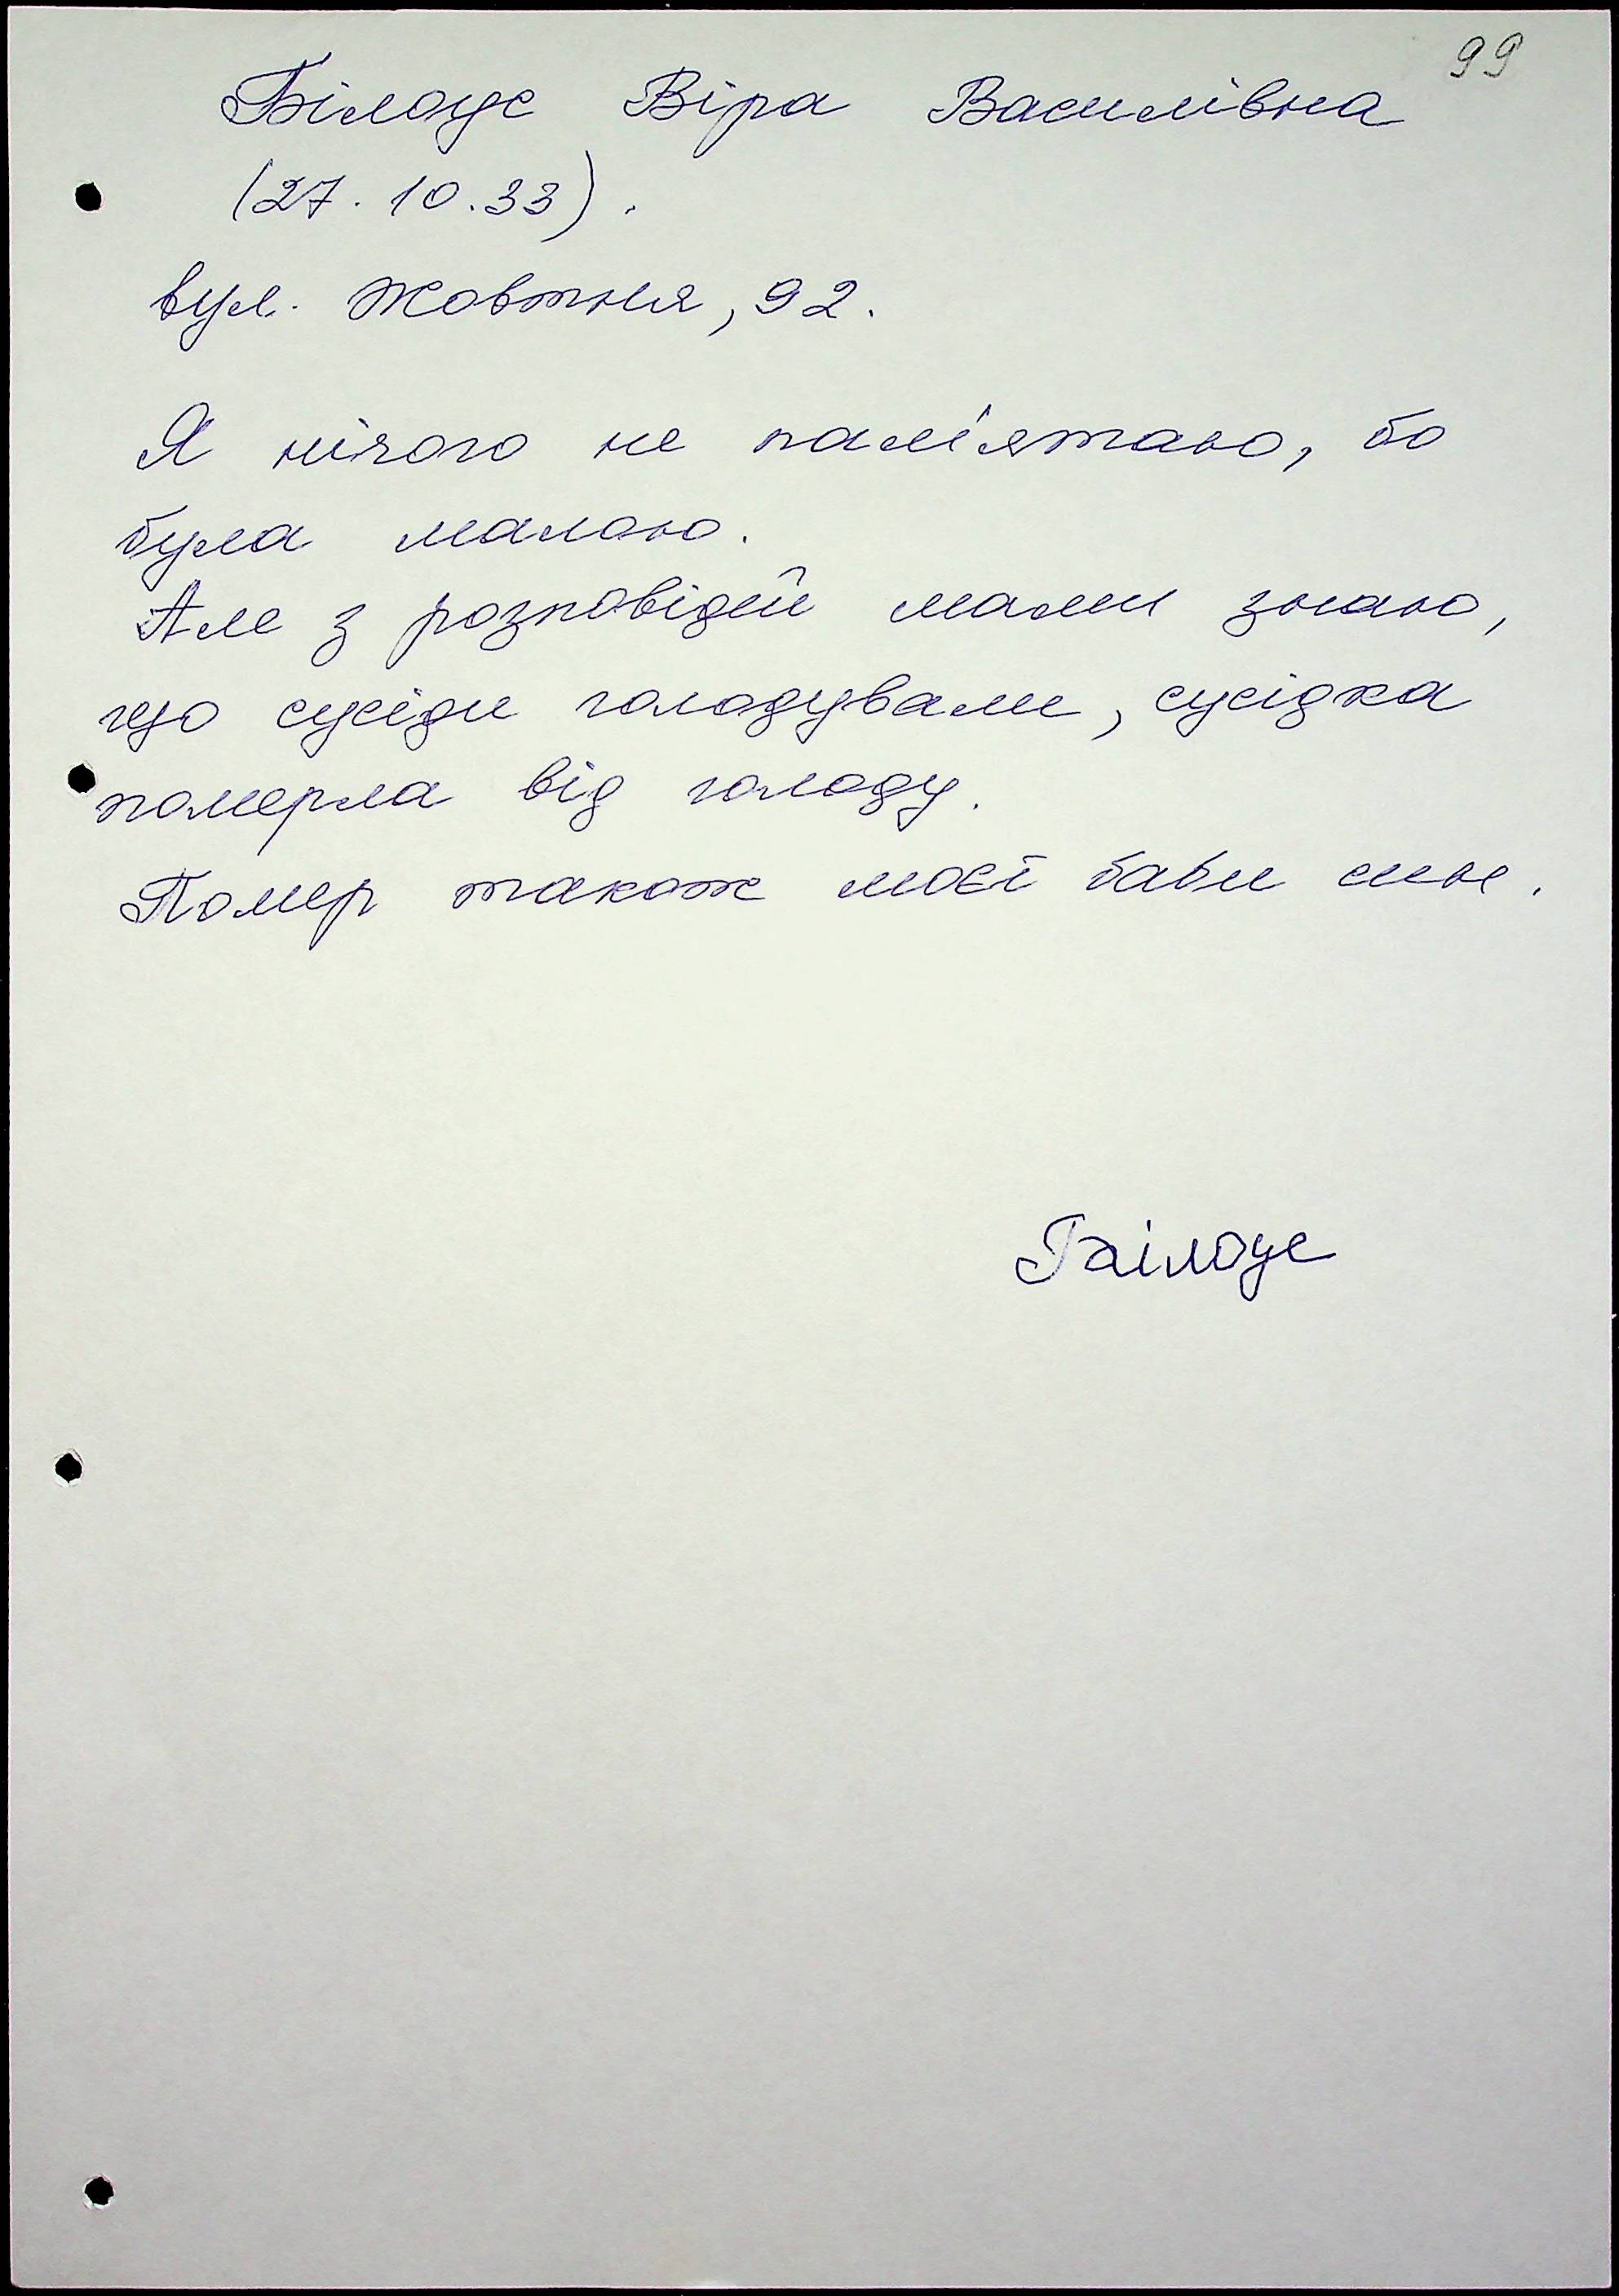 99
Білоус Віра Василівна
(27.10.33).
вул. Жовтня, 92.
Я нічого не пам'ятаю, бо
була малою.
Але з розповідей мами знаю,
що сусіди голодували, сусідка
померла від голоду.
Помер також моєї баби син.
Білоус